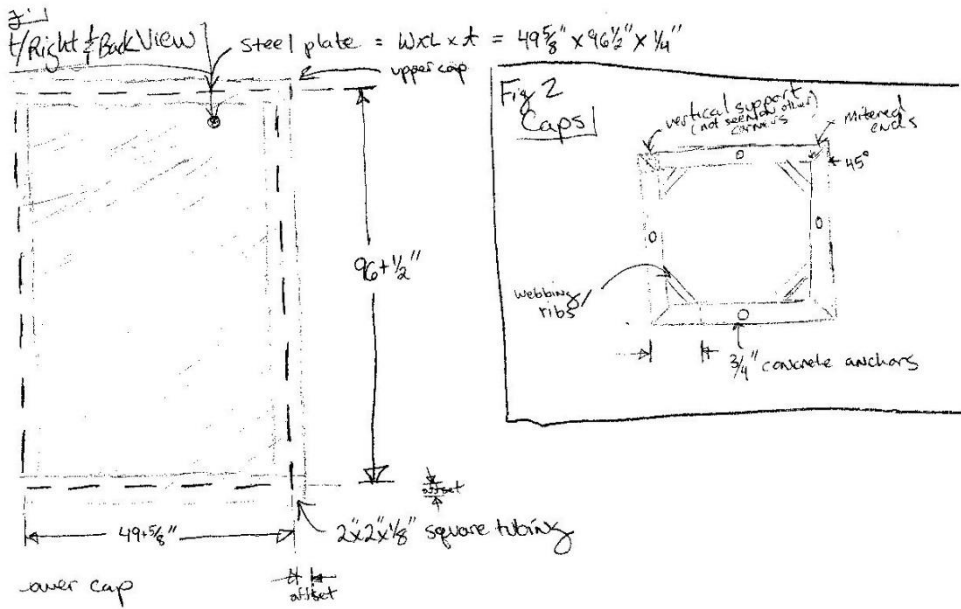 t/Right & Back View
Steel plate = WxL x t = 49 5/8" x 96 1/2" x 1/4"
upper cap
96+1/2"
offset
49+5/8"
2"x2"x1/8" square tubing
ower cap
offset
Fig 2
Caps
vertical support
(not seen on other
corners
mitered
ends
45°
webbing
ribs
3/4" concrete anchors